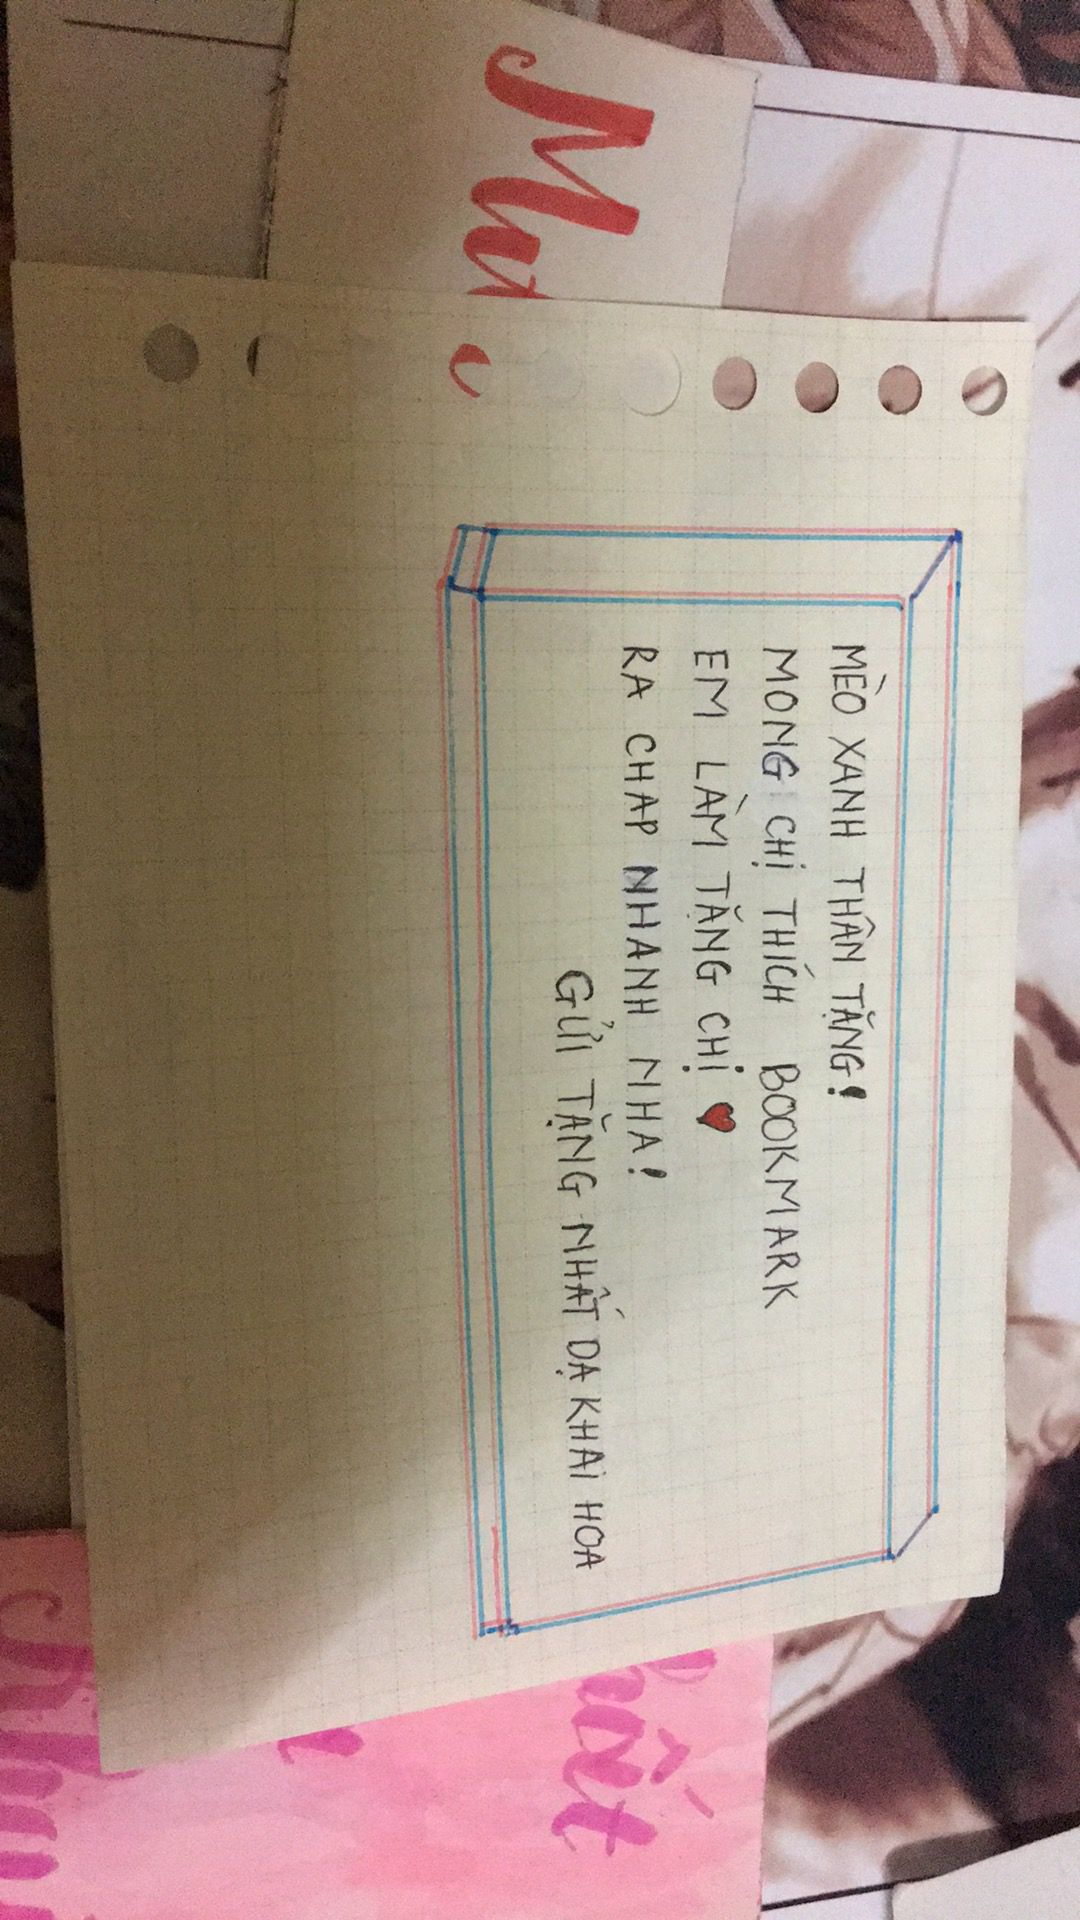 MÈO XANH THÂN TẶNG!
MONG CHỊ THÍCH BOOKMARK
EM LÀM TẶNG CHỊ ♥
RA CHAP NHANH NHA!
GỬI TẶNG NHẤT DẠ KHAI HOA